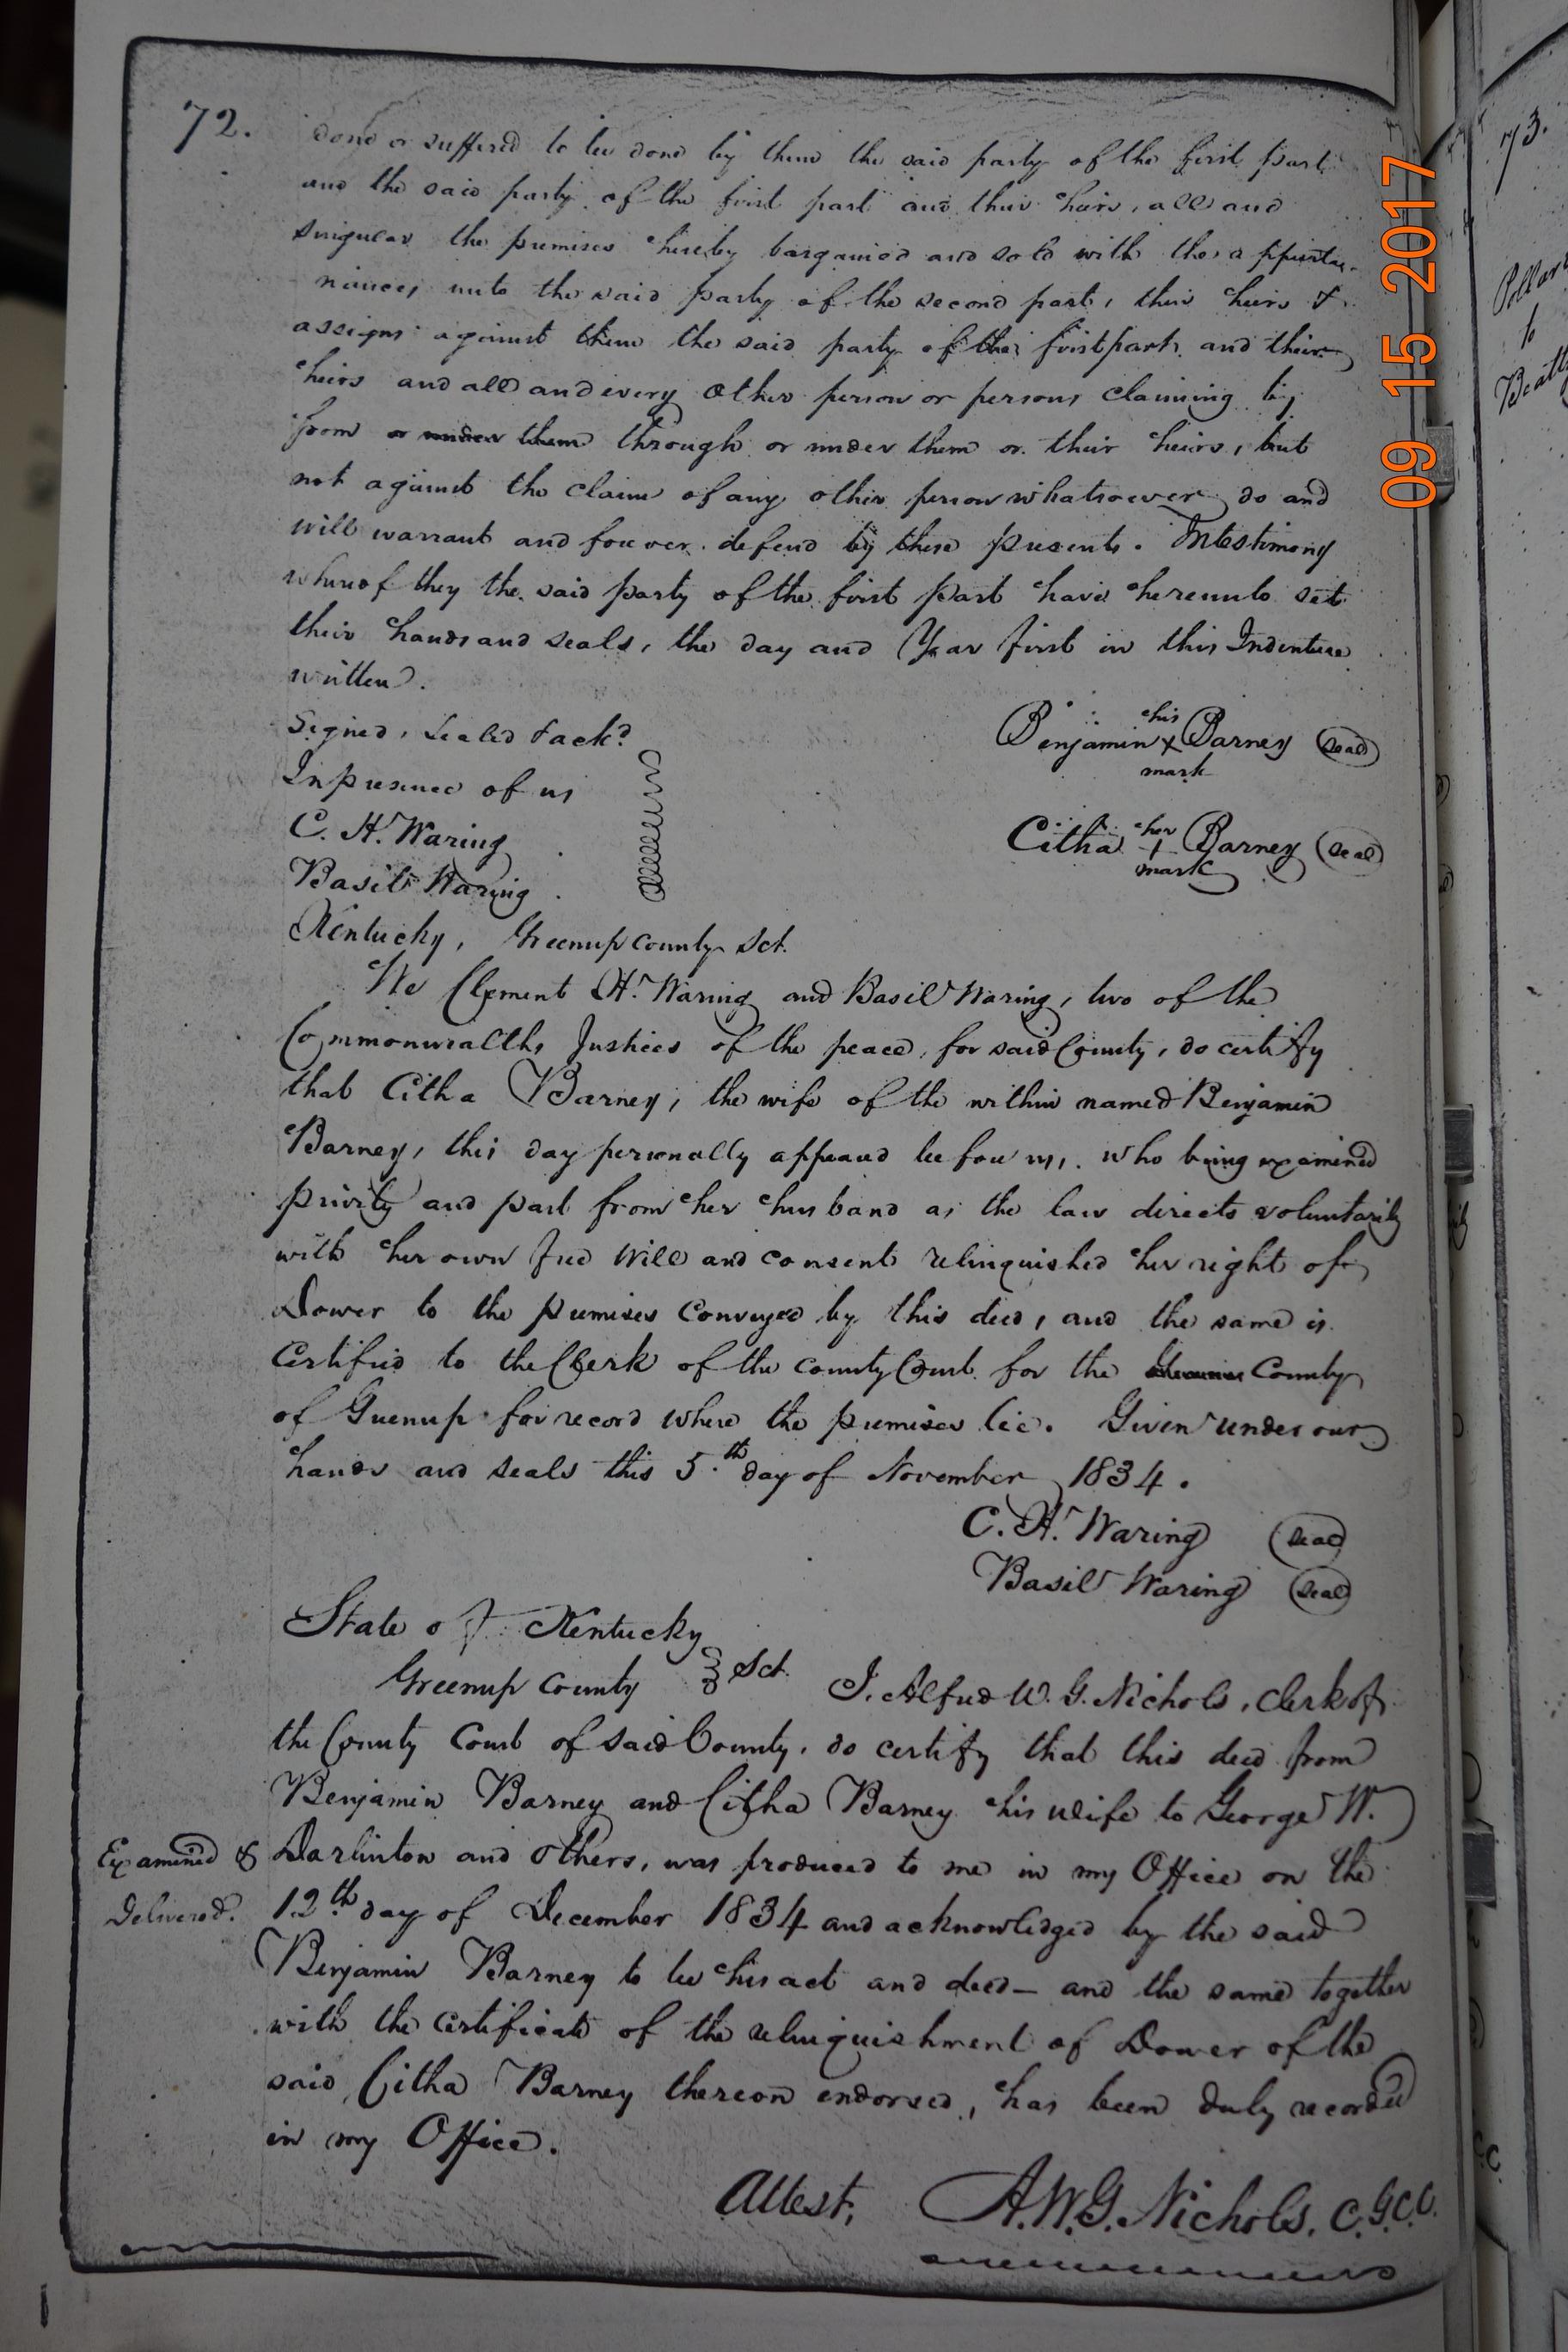 72.
done or suffered to be done by them the said party of the first part
and the said party of the first part and their heirs, all and
singular the premises hereby bargained and sold with the appurte-
nances unto the said party of the second part, their heirs &
assigns against them the said party of the first part and their
heirs and all and every other person or persons claiming by
from or under them through or under them or their heirs, but
not against the claim of any other person whatsoever do and
will warrant and forever defend by these presents. In testimony
whereof they the said party of the first part have hereunto set
their hands and seals, the day and Year first in this Indenture
written.
Signed, Sealed & ackd.
In presence of us
C. H. Waring
Basil Waring
Benjamin his X mark Barney (Seal)
Citha her + mark Barney (Seal)
Kentucky, Greenup county Sct.
We Clement H. Waring and Basil Waring, two of the
Commonwealths Justices of the peace, for said County, do certify
that Citha Barney, the wife of the within named Benjamin
Barney, this day personally appeared before us, who being examined
privily and part from her husband as the law directs voluntarily
with her own free Will and consent relinquished her right of
Dower to the premises Conveyed by this deed, and the same is
Certified to the Clerk of the county Court for the County
of Greenup for record where the premises lie. Given under our
hands and seals this 5.th day of November 1834.
C. H. Waring (Seal)
Basil Waring (Seal)
State of Kentucky
Greenup County Sct. I, Alfred W. G. Nichols, Clerk of
the County Court of said County, do certify that this deed from
Benjamin Barney and Citha Barney his wife to George W.
Examined & Darlinton and others, was produced to me in my Office on the
Delivered. 12.th day of December 1834 and acknowledged by the said
Benjamin Barney to be his act and deed – and the same together
with the certificate of the relinquishment of Dower of the
said Citha Barney thereon endorsed, has been duly recorded
in my Office.
Attest, A. W. G. Nichols, C. G. C. C.
09 15 2017
73.
to